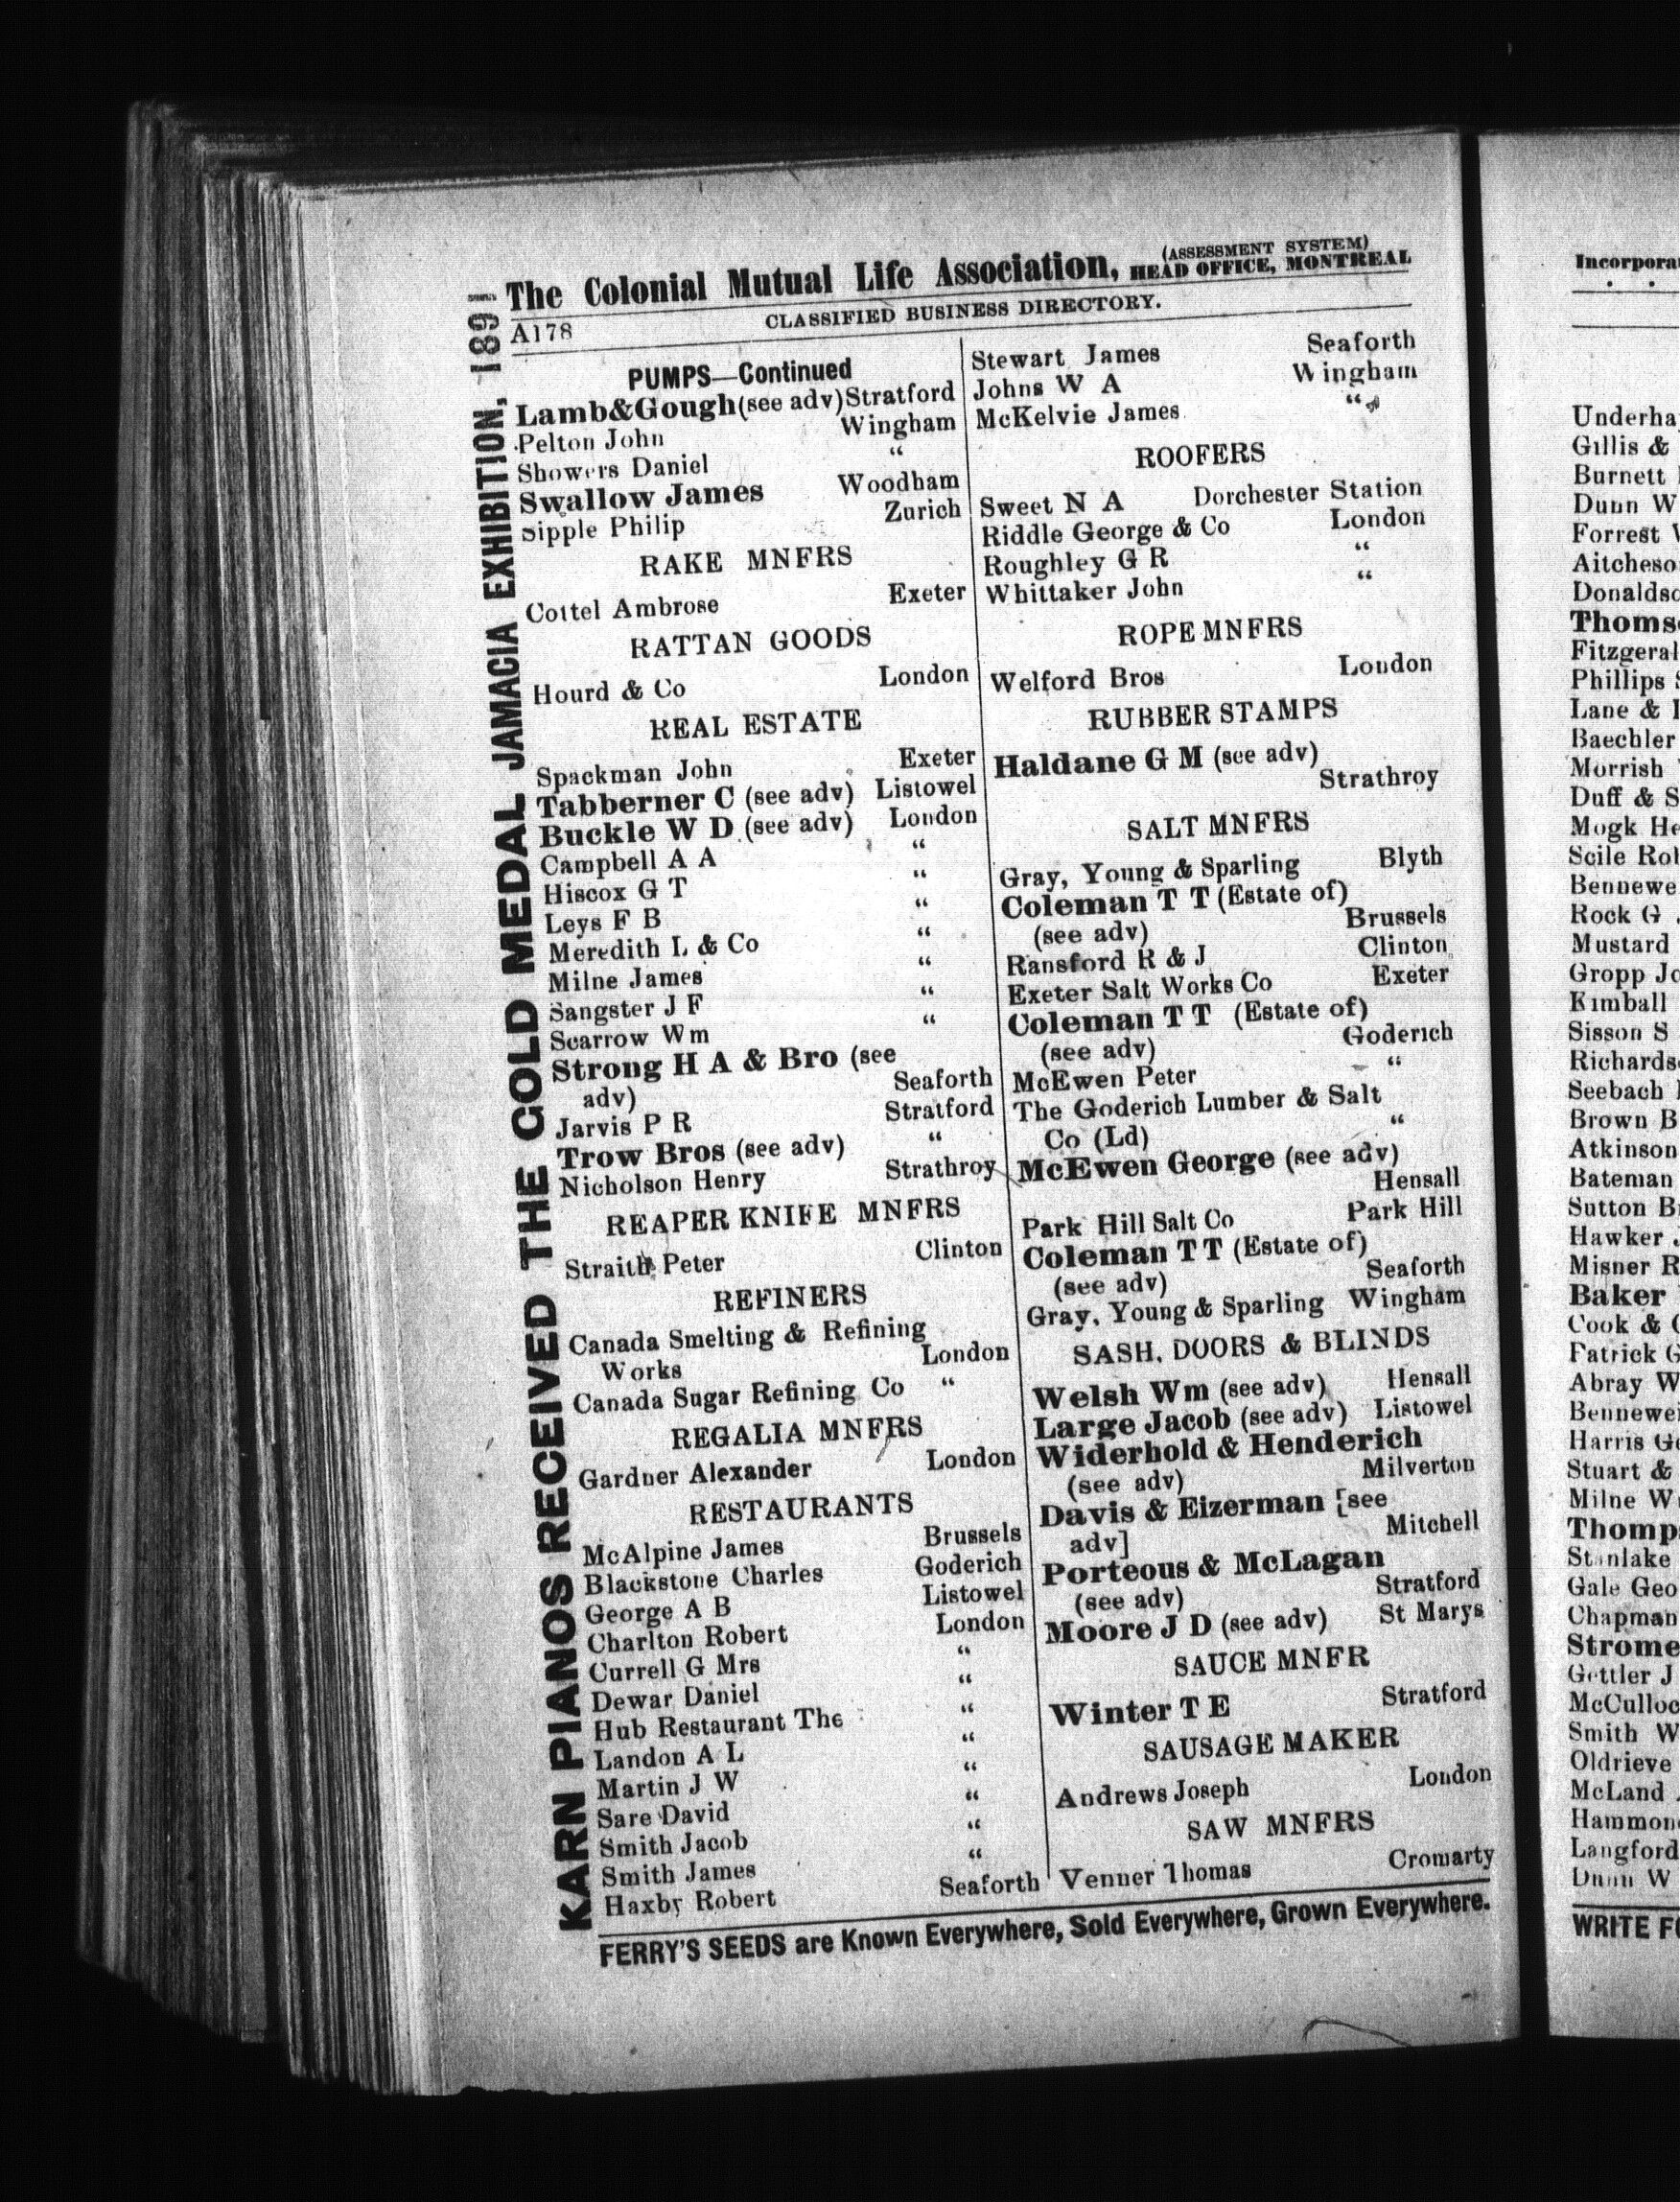 The Colonial Mutual Life Association, (ASSESSMENT SYSTEM) HEAD OFFICE, MONTREAL
A178 CLASSIFIED BUSINESS DIRECTORY.
KARN PIANOS RECEIVED THE GOLD MEDAL JAMACIA EXHIBITION, 1891
PUMPS—Continued
Lamb&Gough(see adv)Stratford
Pelton John Wingham
Showers Daniel “
Swallow James Woodham
Sipple Philip Zurich
RAKE MNFRS
Cottel Ambrose Exeter
RATTAN GOODS
Hourd & Co London
REAL ESTATE
Spackman John Exeter
Tabberner C (see adv) Listowel
Buckle W D (see adv) London
Campbell A A “
Hiscox G T “
Leys F B “
Meredith L & Co “
Milne James “
Sangster J F “
Scarrow Wm “
Strong H A & Bro (see
adv) Seaforth
Jarvis P R Stratford
Trow Bros (see adv) “
Nicholson Henry Strathroy
REAPER KNIFE MNFRS
Straith Peter Clinton
REFINERS
Canada Smelting & Refining
Works London
Canada Sugar Refining Co “
REGALIA MNFRS
Gardner Alexander London
RESTAURANTS
McAlpine James Brussels
Blackstone Charles Goderich
George A B Listowel
Charlton Robert London
Currell G Mrs “
Dewar Daniel “
Hub Restaurant The “
Landon A L “
Martin J W “
Sare David “
Smith Jacob “
Smith James “
Haxby Robert Seaforth
Stewart James Seaforth
Johns W A Wingham
McKelvie James “
ROOFERS
Sweet N A Dorchester Station
Riddle George & Co London
Roughley G R “
Whittaker John “
ROPE MNFRS
Welford Bros London
RUBBER STAMPS
Haldane G M (see adv)
Strathroy
SALT MNFRS
Gray, Young & Sparling Blyth
Coleman T T (Estate of)
(see adv) Brussels
Ransford R & J Clinton
Exeter Salt Works Co Exeter
Coleman T T (Estate of)
(see adv) Goderich
McEwen Peter “
The Goderich Lumber & Salt
Co (Ld) “
McEwen George (see adv)
Hensall
Park Hill Salt Co Park Hill
Coleman T T (Estate of)
(see adv) Seaforth
Gray, Young & Sparling Wingham
SASH, DOORS & BLINDS
Welsh Wm (see adv) Hensall
Large Jacob (see adv) Listowel
Widerhold & Henderich
(see adv) Milverton
Davis & Eizerman [see
adv] Mitchell
Porteous & McLagan
(see adv) Stratford
Moore J D (see adv) St Marys
SAUCE MNFR
Winter T E Stratford
SAUSAGE MAKER
Andrews Joseph London
SAW MNFRS
Venner Thomas Cromarty
FERRY'S SEEDS are Known Everywhere, Sold Everywhere, Grown Everywhere.
Gillis &
Burnett
Dunn W
Forrest
Phillips
Lane &
Baechler
Morrish
Duff & S
Mogk
Rock G
Mustard
Gropp
Kimball
Sisson S
Seebach
Brown B
Atkinson
Bateman
Sutton
Hawker
Misner R
Baker
Cook &
Patrick G
Abray W
Harris
Stuart &
Milne W
Stanlake
Gale Geo
Chapman
Gettler J
Smith W
Oldrieve
McLand
Langford
Dunn W
WRITE